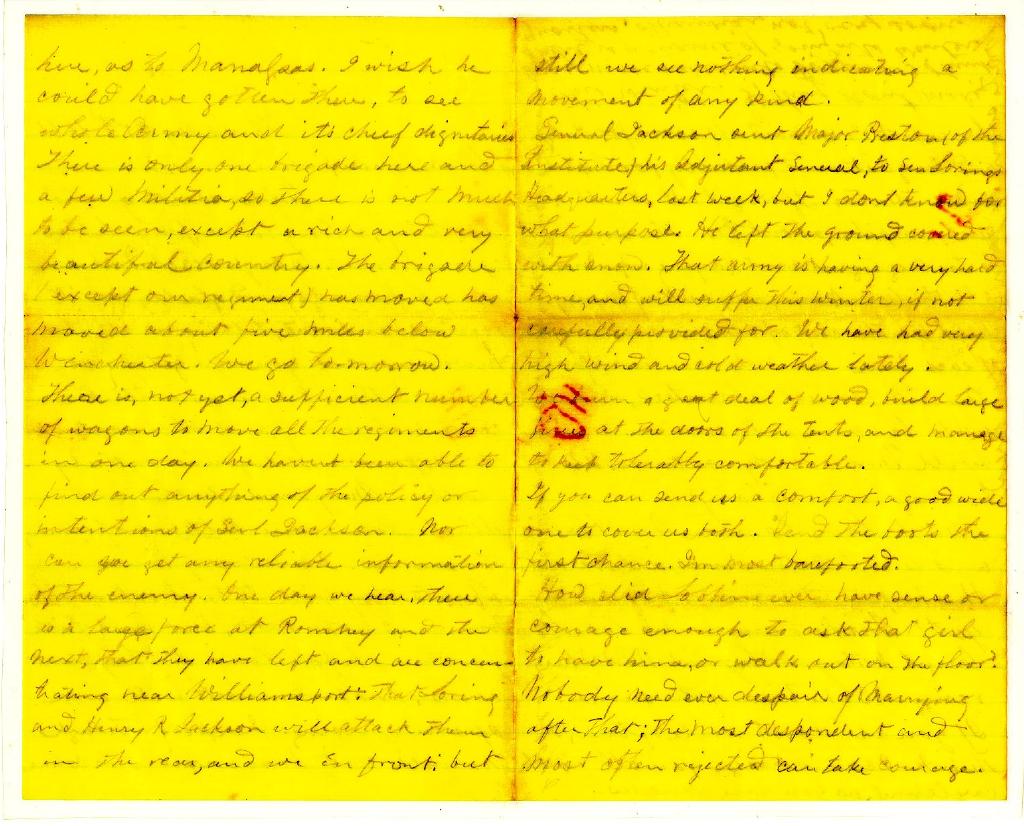 here, as to Manassas. I wish he
could have gotten there, to see
whole Army and its chief dignitaries
There is only one brigade here and
a few Militia, so there is not much
to be seen, except a rich and very
beautiful country. The brigade
(except our regiment) has moved has
moved about five miles below
Winchester. We go to-morrow.
There is, not yet, a sufficient number
of wagons to move all the regiments
in one day. We havent been able to
find out anything of the policy or
intentions of Genl Jackson. Nor
can you get any reliable information
of the enemy. One day we hear, there
is a large force at Romney and the
next, that they have left and are concen-
trating near Williamsport: That Loring
and Henry R Jackson will attack them
in the rear, and we in front: but
still we see nothing indicating a
movement of any kind.
General Jackson sent Major Preston (of the
Institute) his Adjutant General, to Gen Lorings
Headquarters, last week, but I dont know for
what purpose. He left the ground covered
with snow. That army is having a very hard
time, and will suffer this winter, if not
carefully provided for. We have had very
high wind and cold weather lately.
We burn a great deal of wood, build large
fires at the doors of the tents, and manage
to keep tolerably comfortable.
If you can send us a comfort, a good wide
one to cover us both. Send the boots the
first chance. I'm most barefooted.
How did ever have sense or
courage enough to ask that girl
to have him, or walk out on the floor?
Nobody need ever despair of Marrying
after that; the most despondent and
most often rejected can take courage.